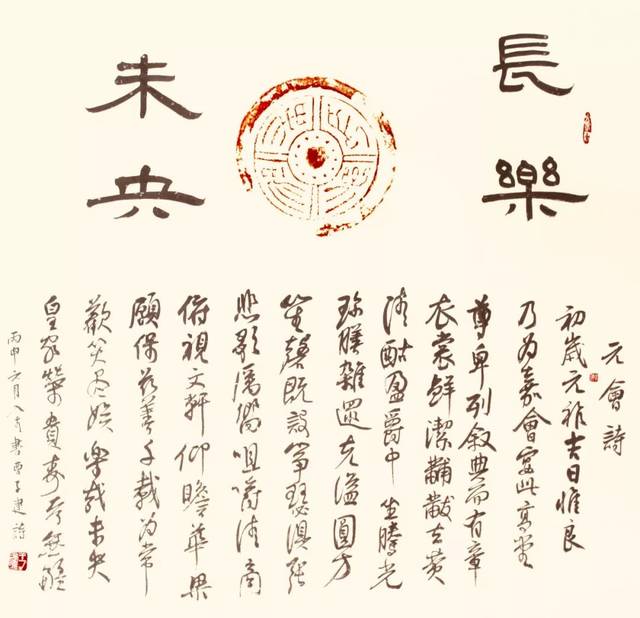 長樂
未央
元會詩
初歲元祚吉日惟良
乃为嘉會宴此高堂
尊卑列叙典而有章
衣裳鮮潔黼黻玄黄
清酤盈爵中坐騰光
珍膳雜遝充溢圓方
笙磬既設箏瑟俱張
悲歌厲響咀嚼清商
俯視文軒仰瞻華梁
願保茲善千載为常
歡笑盡娱樂哉未央
皇家榮貴壽考無疆
丙申六月書曹子建詩